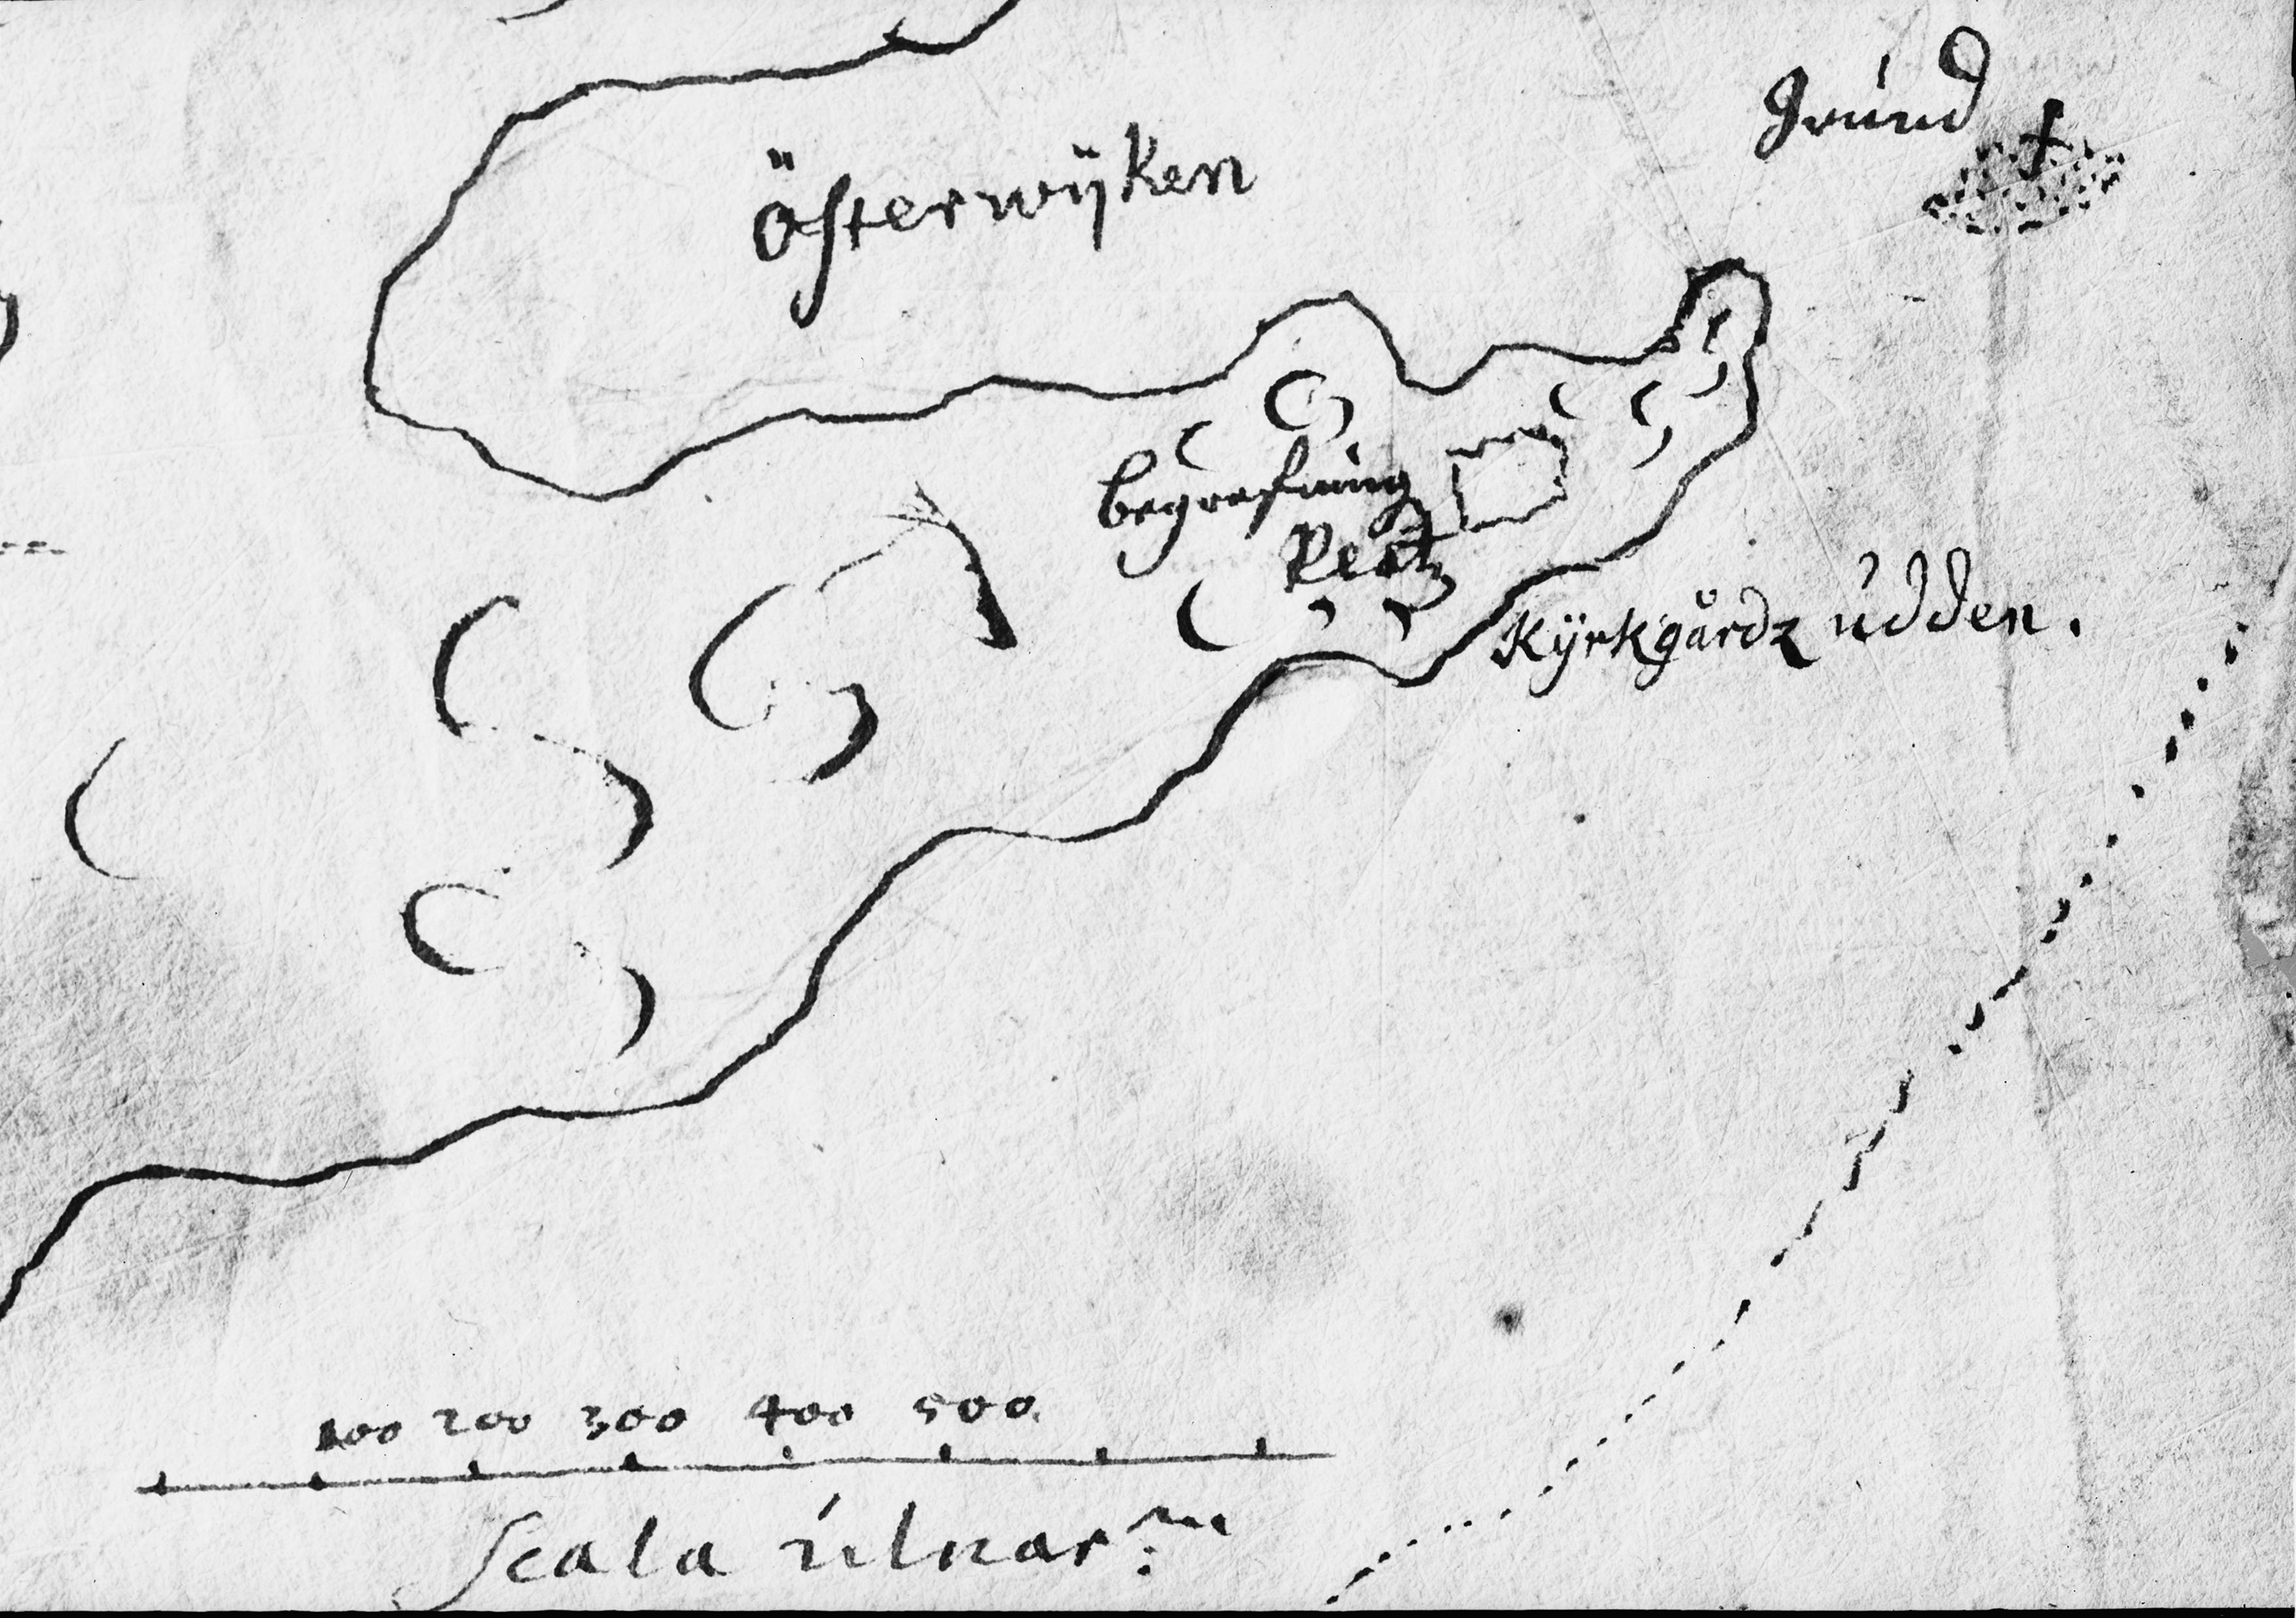 Grund
Österwijken
begrafning
Platz
Kÿrkgårdz udden.
100 200 300 400 500
Scala ulnar:m